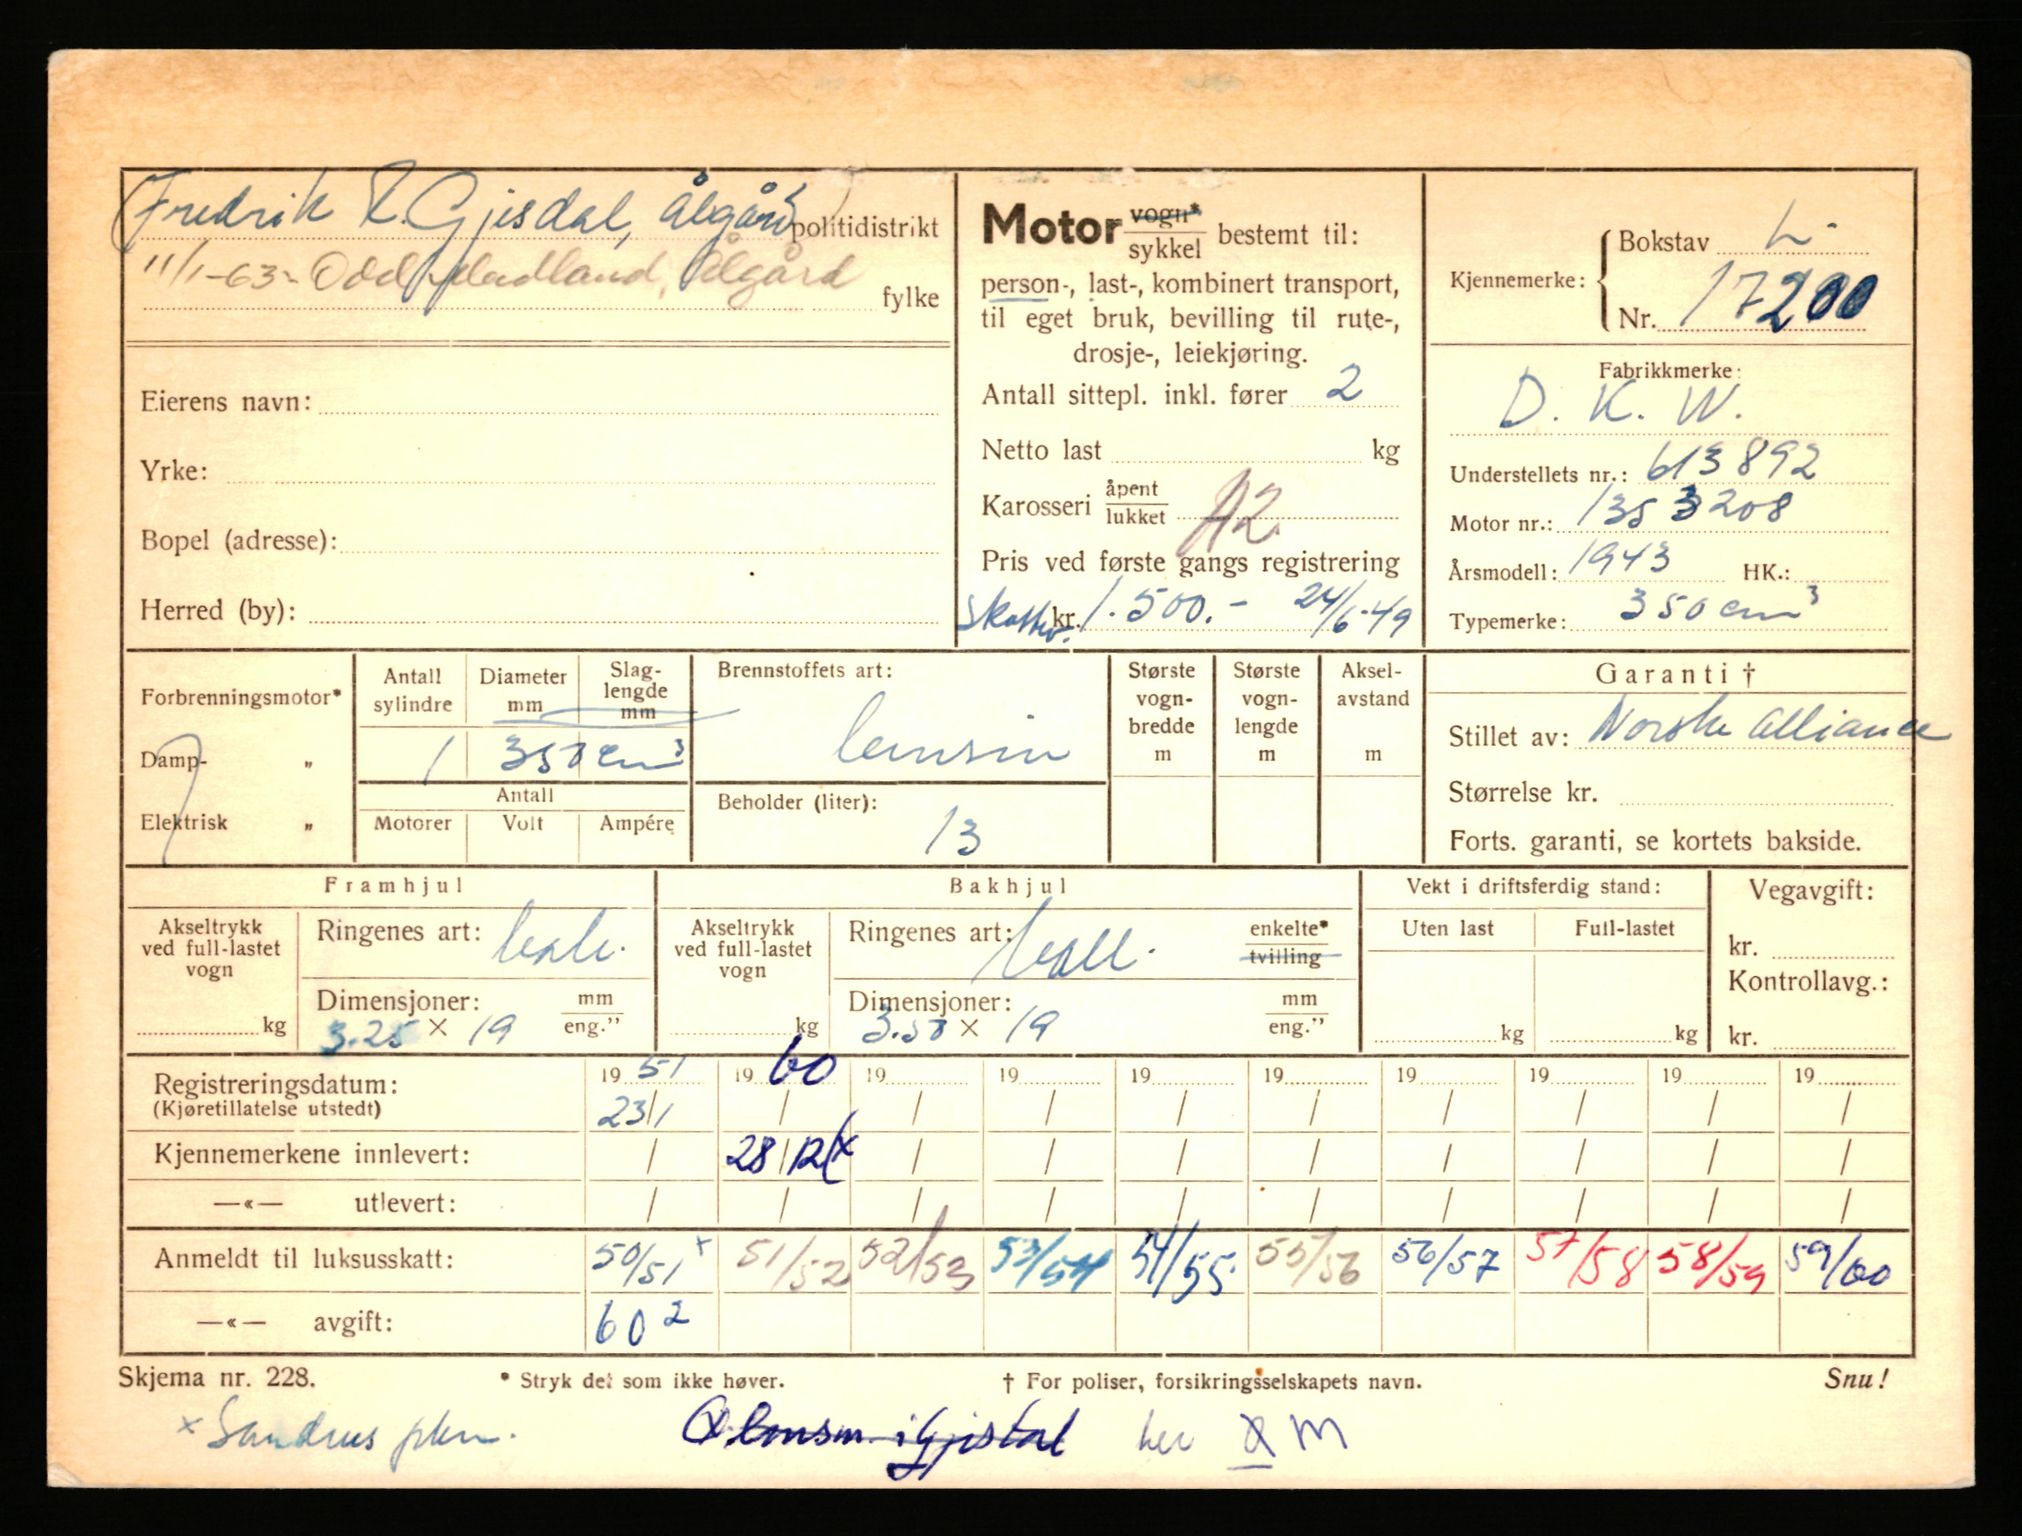 Fredrik R. Gjesdal, Ålgård politidistrikt
11/1-63- Odd Madland, Ålgård fylke
Eierens navn:
Yrke:
Bopel (adresse):
Herred (by):
Motor vogn* sykkel bestemt til:
person-, last-, kombinert transport,
til eget bruk, bevilling til rute-,
drosje-, leiekjøring.
Antall sittepl. inkl. fører 2
Netto last kg
Karosseri åpent lukket A2.
Pris ved første gangs registrering
kr. 1.500.- 24/6-49
Kjennemerke: Bokstav L-
Nr. 17200
Fabrikkmerke:
D. K. W.
Understellets nr.: 613892
Motor nr.: 1353208
Årsmodell: 1943 HK.:
Typemerke: 350 cm3
Forbrenningsmotor*
Damp- „
Elektrisk „
Antall sylindre Diameter mm Slag-lengde mm
1 350 cm3
Antall
Motorer Volt Ampére
Brennstoffets art:
bensin
Beholder (liter):
13
Største vogn-bredde m
Største vogn-lengde m
Aksel-avstand m
Garanti †
Stillet av: Norske Alliance
Størrelse kr.
Forts. garanti, se kortets bakside.
Framhjul
Akseltrykk ved full-lastet vogn
kg
Ringenes art:
Dimensjoner: mm eng."
3.25 × 19
Bakhjul
Akseltrykk ved full-lastet vogn
kg
Ringenes art: ball. enkelte* tvilling
Dimensjoner: mm eng."
3.50 × 19
Vekt i driftsferdig stand:
Uten last Full-lastet
kg kg
Vegavgift:
kr.
Kontrollavg.:
kr.
Registreringsdatum: 1951 1960 19 19 19 19 19 19 19 19
(Kjøretillatelse utstedt) 23/1 / / / / / / / / /
Kjennemerkene innlevert: / 28/12(x / / / / / / / /
—«— utlevert: / / / / / / / / / /
Anmeldt til luksusskatt: 50/51 x 51/52 52/53 53/54 54/55. 55/56 56/57 57/58 58/59 59/60
—«— avgift: 60 2
Skjema nr. 228. * Stryk det som ikke høver. † For poliser, forsikringsselskapets navn. Snu!
x Sandnes
i Gjesdal her x M